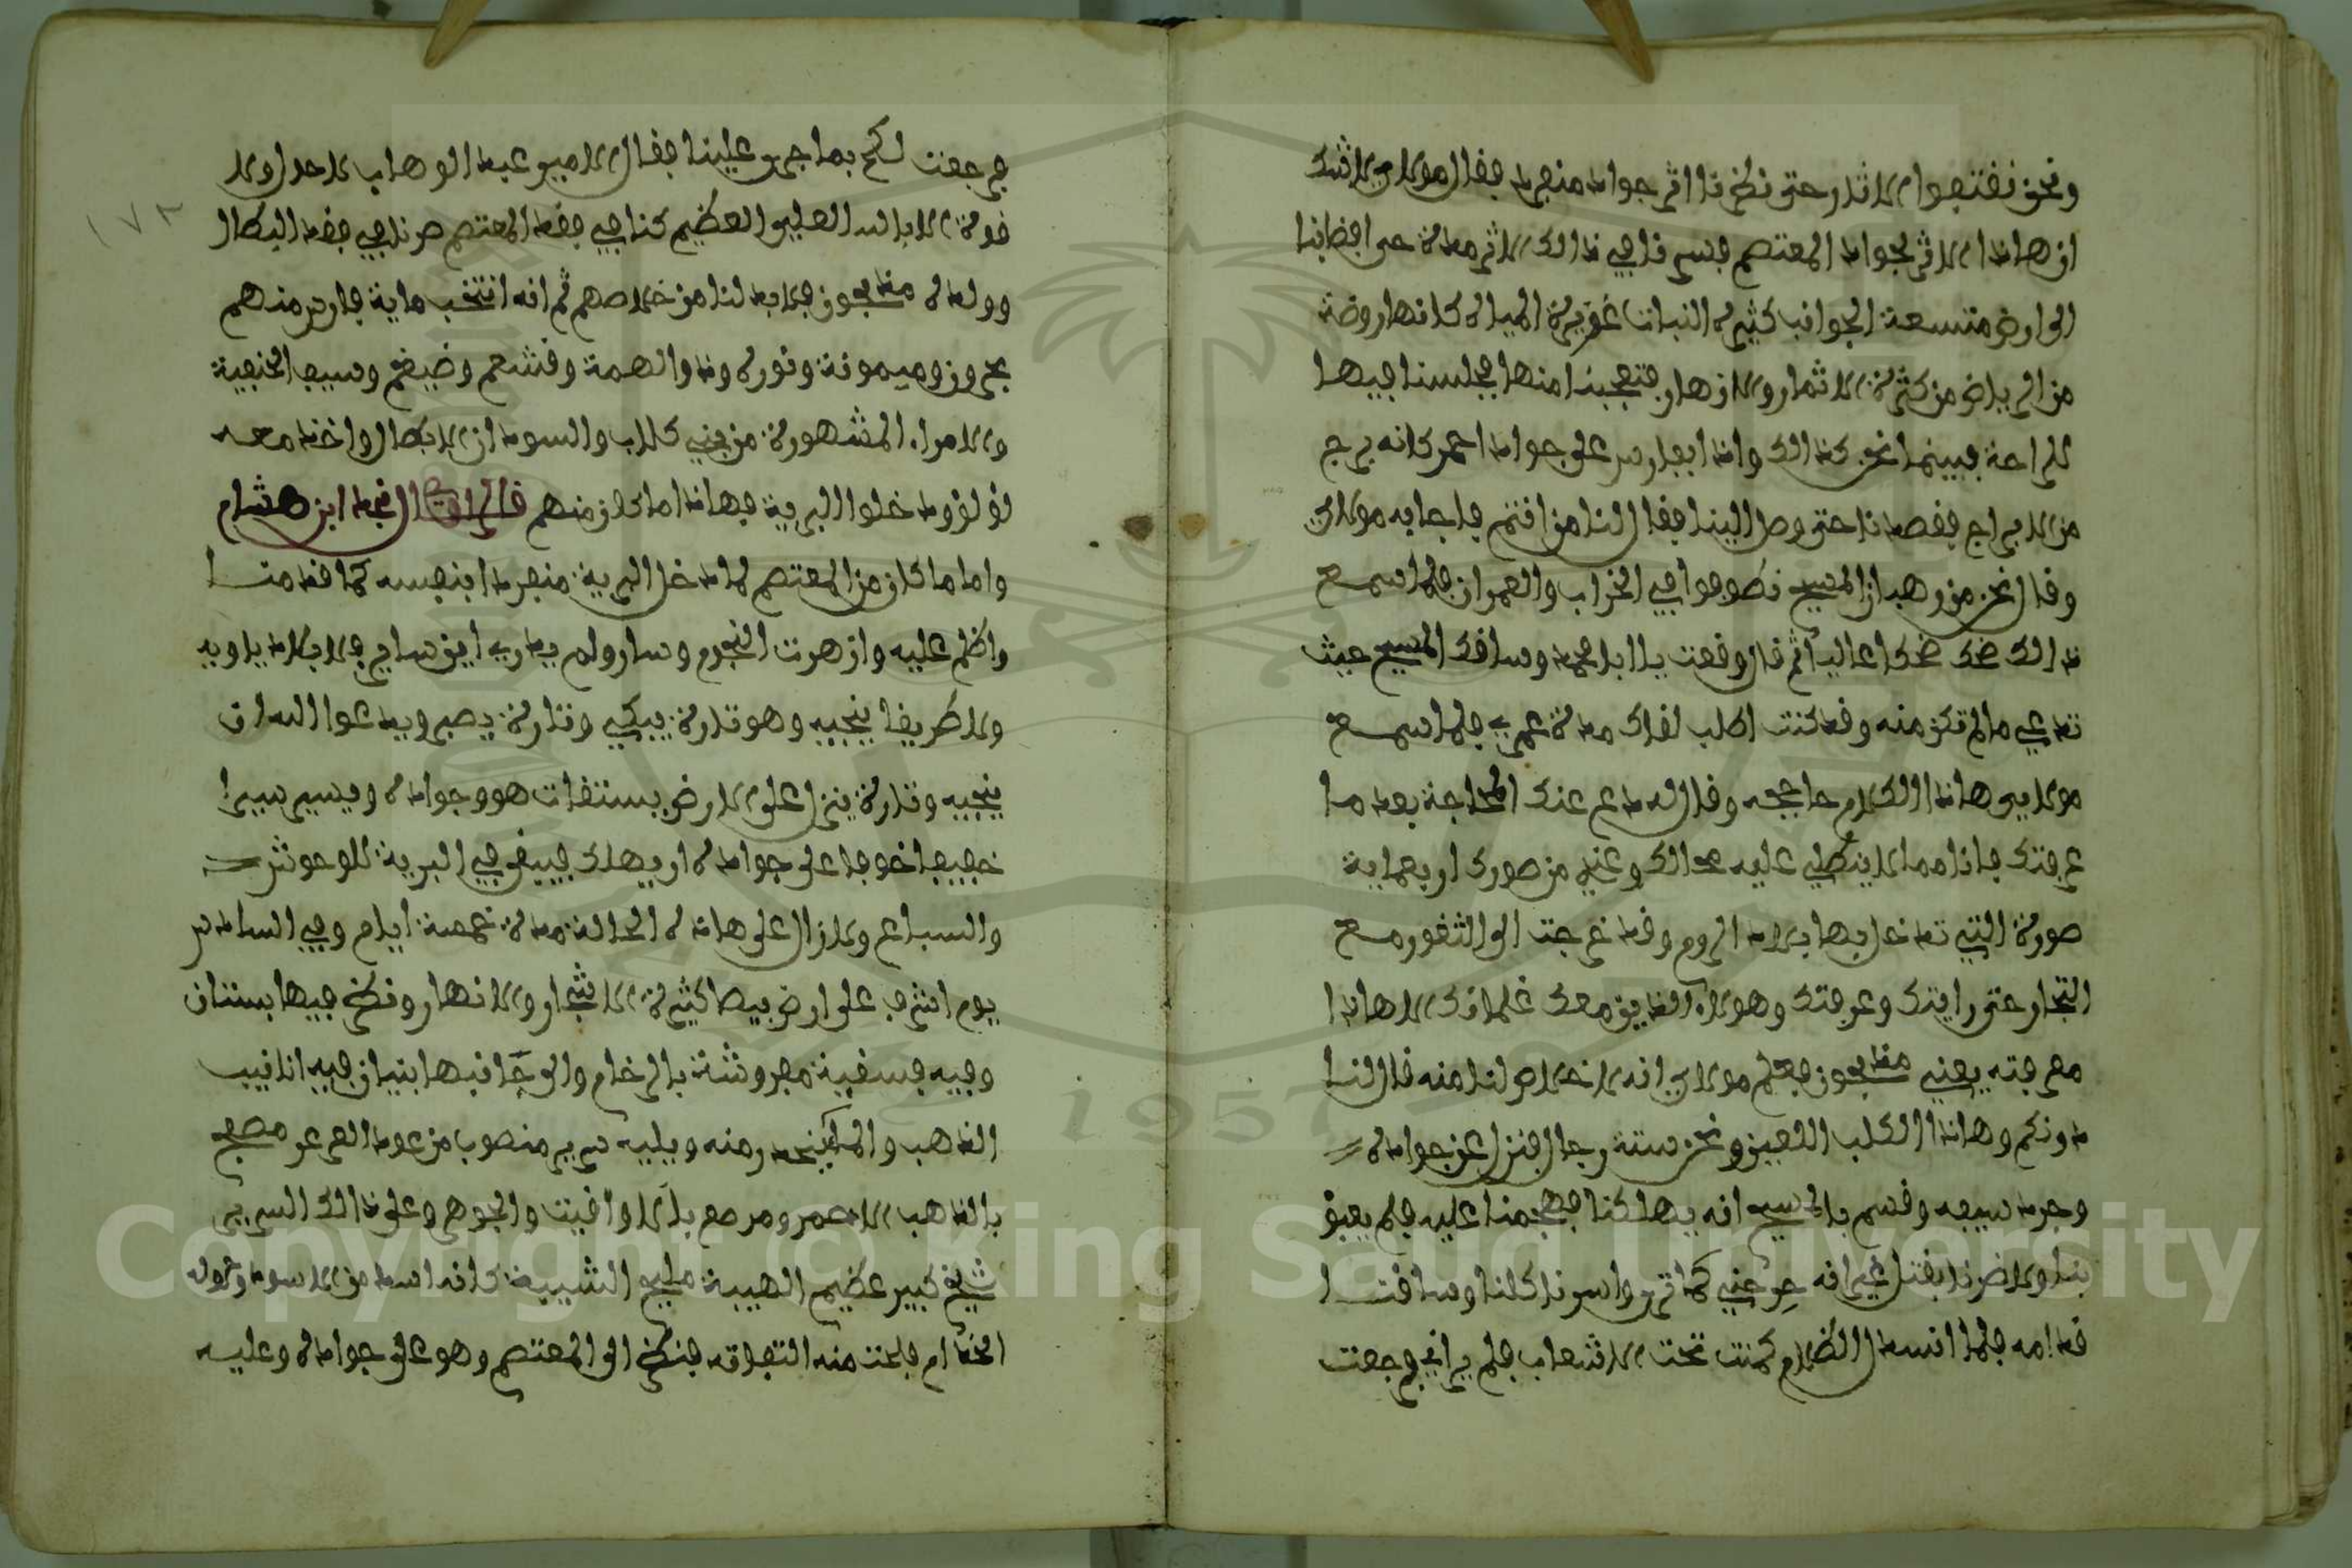 ونحن نقتفوا الاثار حتى نظرنا اثر جواد منفرد فقال مولاي لاشك
ان هاذا الاثر لجواد المعتصم فسرنا في ذالك الاثر مدة حتى افضا بنا
الى ارض متسعة الجوانب كثيرة النبات غزيرة المياه كانها روضة
من الرياض من كثرة الاثمار والازهار فتعجبنا منها فجلسنا فيها
للراحة فبينما نحن كذالك واذا بفارس على جواد احمر كانه برج
من الابراج فقصدنا حتى وصل الينا فقال لنا من انتم فاجابه مولاي
وقال نحن من رهبان المسيح نطوفوا في الخراب والعمران فلما سمع
ذالك ضحك ضحكا عاليا ثم قال وقعت يا ابا محمد وساقك المسيح حيث
تدعي مالم تكن منه وقد كنت اطلب لقاك مدة عمري فلما سمع
مولاي هاذا الكلام حاججه وقال له دع عنك المحاججة بعد ما
عرفتك فانا مما لا ينطلي عليه محالك وعندي من صورك اربعماية
صورة التي تدخل بها بلاد الروم وقد خرجت الى الثغور مع
التجار حتى رايتك وعرفتك وهولاء الذين معك غلمانك الا هاذا
معرفته يعني مذبحون فعلم مولاي انه لا خلاص لنا منه فقال لنا
دونكم وهاذا الكلب اللعين ونحن ستة رجال فنزل عن جواده
وجرد سيفه وقسم بالمسيح انه يهلكنا فهجمنا عليه فلم يعبؤ
بنا ولا ضرنا بقتل غير انه جرحني كما ترى واسرنا كلنا وساقنا
قدامه فلما انسدل الظلام كمنت تحت الاشعاب فلم يراني ورجعت
فرجعت لكم بما جرى علينا فقال الامير عبد الوهاب لا حول ولا
قوة الا بالله العلي العظيم كنا في فقد المعتصم صرنا في فقد البطال
وولده مذبحون فلا بد لنا من خلاصهم ثم انه انتخب ماية فارس منهم
بحرون وميمونة ونورة وذا الهمة وقشعم وضيغم وسيف الحنيفية
والامراء المشهورة من بني كلاب والسودان الابطال واخذ معه
لؤلؤ ودخلوا البرية فهاذا ما كان منهم قال الراوي قال نجد ابن هشام
واما ما كان من المعتصم لما دخل البرية منفردا بنفسه كما قدمنا
واظلم عليه وازهرت النجوم وسار ولم يدري اين ساير فلا بلاد ياويه
ولا طريقا ينجيه وهو تارة يبكي وتارة يصبر ويدعوا الله ان
ينجيه وتارة ينزل على الارض يستقات هو وجواده ويسير سيرا
خفيفا خوفا على جواده ان يهلك فيبقى في البرية للوحوش
والسباع ولازال على هاذه الحالة مدة خمسة ايام وفي السادس
يوم اشرف على ارض بيضا كثيرة الاشجار والانهار ونظر فيها بستان
وفيه فسقية مفروشة بالرخام والى جانبها بنيان فيه انابيب
الذهب والما ينحدر منه ويليه سرير منصوب من عود العرعر مصفح
بالذهب الاحمر ومرصع باليواقيت والجوهر وعلى ذالك السرير
شيخ كبير عظيم الهيبة مليح الشيبة كانه اسد من الاسود وحوله
الخدام فلاحت منه التفاتة فنظر الى المعتصم وهو على جواده وعليه
١٧٢
Copyright © King Saud University
1957